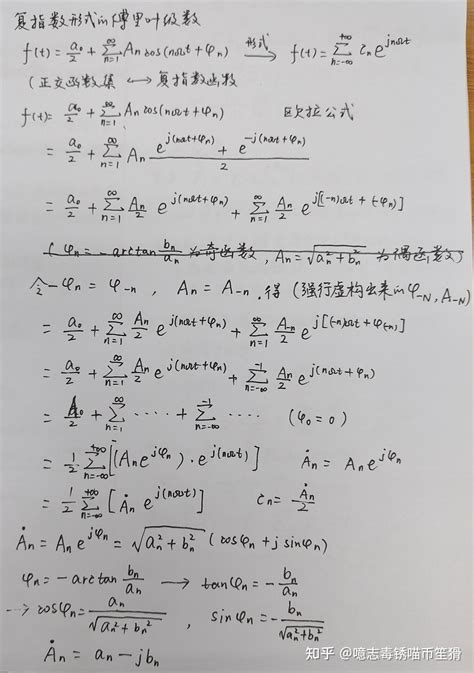 复指数形式的傅里叶级数
f(t) = a₀/2 + ∑_{n=1}^{∞} Aₙ cos(nωt+φₙ) —形式→ f(t) = ∑_{n=-∞}^{+∞} cₙ e^{jnωt}
(正交函数集 ⟷ 复指数函数
f(t) = a₀/2 + ∑_{n=1}^{+∞} Aₙ cos(nωt+φₙ) 欧拉公式
= a₀/2 + ∑_{n=1}^{∞} Aₙ (e^{j(nωt+φₙ)} + e^{-j(nωt+φₙ)})/2
= a₀/2 + ∑_{n=1}^{∞} Aₙ/2 e^{j(nωt+φₙ)} + ∑_{n=1}^{∞} Aₙ/2 e^{j[(-n)ωt+(-φₙ)]}
(φₙ = -arctan bₙ/aₙ 为奇函数, Aₙ = √(aₙ²+bₙ²) 为偶函数)
令 -φₙ = φ₋ₙ , Aₙ = A₋ₙ . 得 (强行虚构出来的 φ₋N, A₋N)
= a₀/2 + ∑_{n=1}^{∞} Aₙ/2 e^{j(nωt+φₙ)} + ∑_{n=1}^{∞} A₋ₙ/2 e^{j[(-n)ωt+φ₍₋ₙ₎]}
= a₀/2 + ∑_{n=1}^{∞} Aₙ/2 e^{j(nωt+φₙ)} + ∑_{n=-∞}^{-1} Aₙ/2 e^{j(nωt+φₙ)}
= A₀/2 + ∑_{n=1}^{∞} ····· + ∑_{n=-∞}^{-1} ····· (φ₀ = 0)
= 1/2 ∑_{n=-∞}^{+∞} [(Aₙ e^{jφₙ})·e^{j(nωt)}] Ȧₙ = Aₙ e^{jφₙ}
= 1/2 ∑_{n=-∞}^{+∞} [Ȧₙ e^{j(nωt)}] cₙ = Ȧₙ/2
Ȧₙ = Aₙ e^{jφₙ} = √(aₙ²+bₙ²) (cosφₙ + j sinφₙ)
φₙ = -arctan bₙ/aₙ ⟶ tanφₙ = -bₙ/aₙ
⇢ cosφₙ = aₙ/√(aₙ²+bₙ²) , sinφₙ = -bₙ/√(aₙ²+bₙ²)
Ȧₙ = aₙ - jbₙ
知乎 @噫志毒锈喵币笙猾